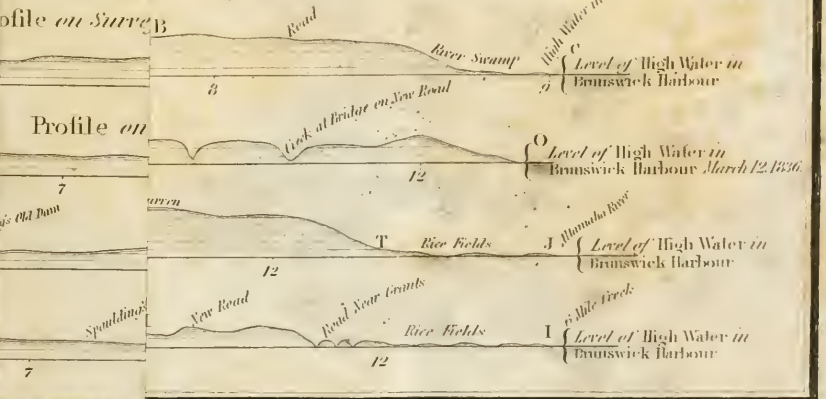 ofile on Surve
B
Road
River Swamp
High Water in
C
Level of High Water in
Brunswick Harbour
8
9
Profile on
Creek at Bridge on New Road
O
Level of High Water in
Brunswick Harbour March 12. 1836.
7
12
g's Old Dam
arren
T
Rice Fields
J
Altamaha River
Level of High Water in
Brunswick Harbour
12
Spoulding's
New Road
Road Near Grants
Rice Fields
I
6 Mile Creek
Level of High Water in
Brunswick Harbour
7
12